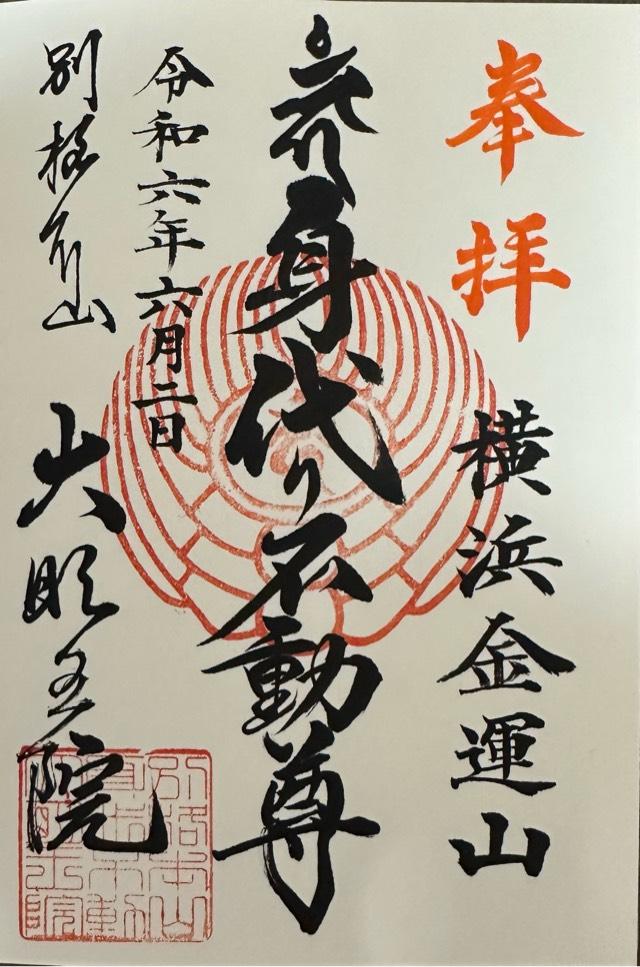 奉拝
横浜金運山
身代り不動尊
令和六年六月二日
別格本山
大明王院